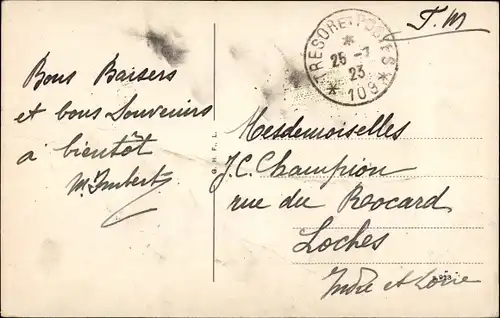 Bons Baisers
et bons Souvenirs
à bientôt
M. Imbert
T.M
TRESOR ET POSTES
25 - 7
23
* 109 *
Mesdemoiselles
J.C. Champion
rue du Bocard
Loches
Indre et Loire